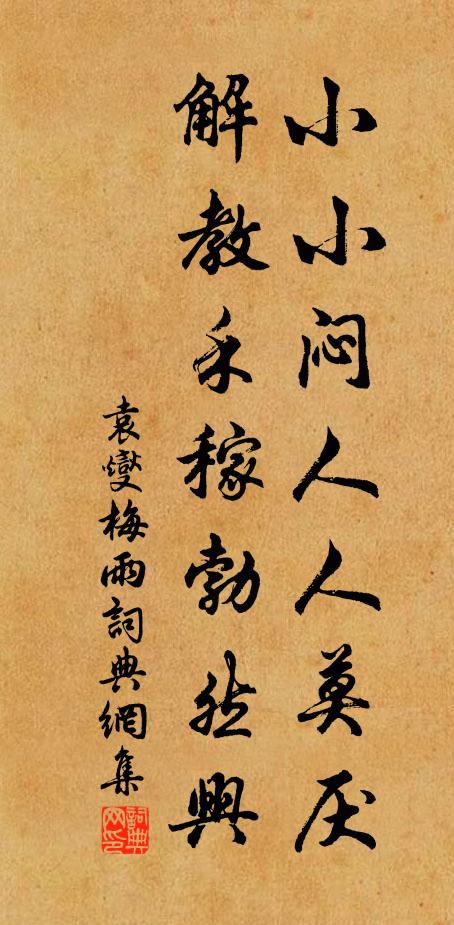 小小闷人人莫厌
解教禾稼勃然興
袁燮梅雨詞典網集
詞典網印